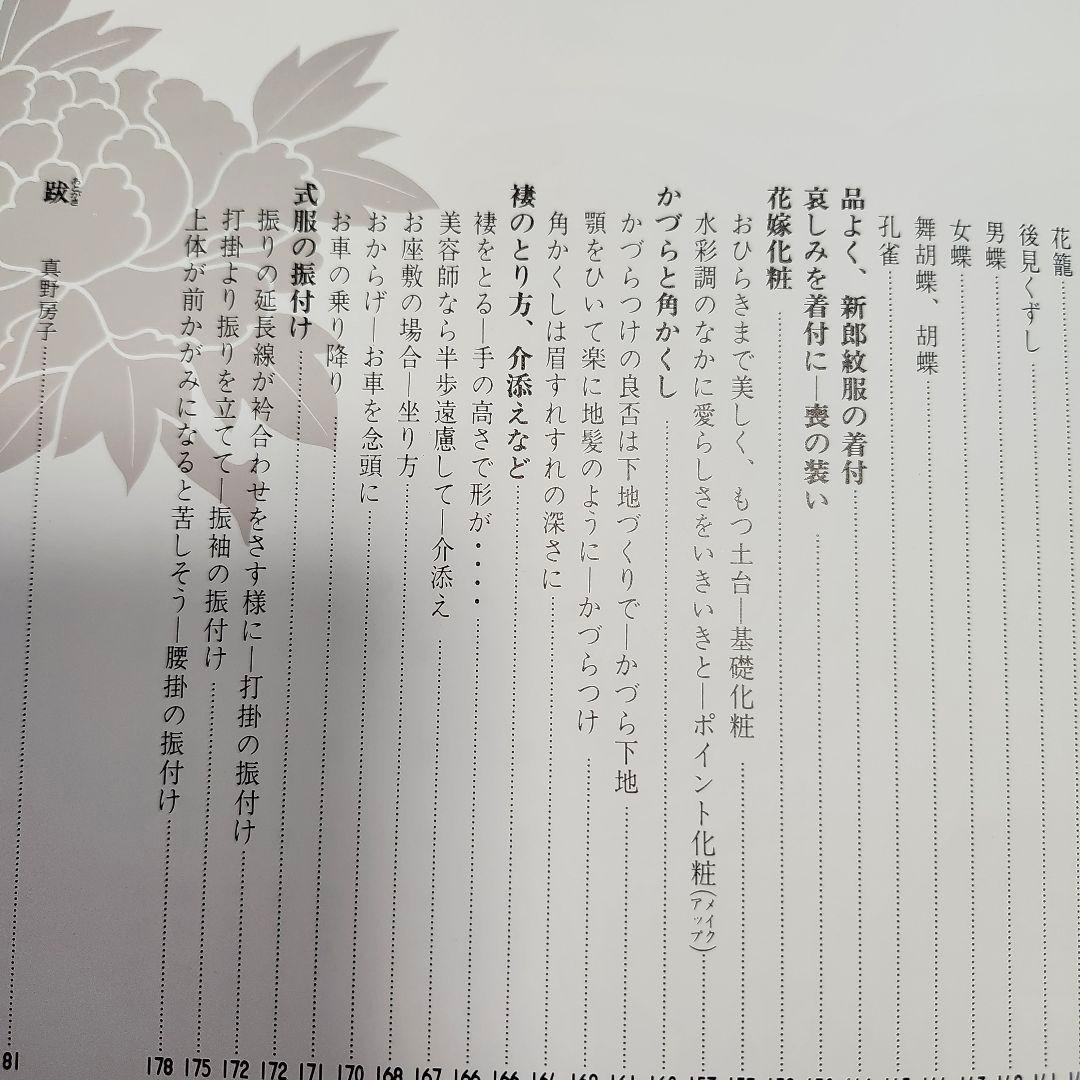 花籠
後見くずし
男蝶
女蝶
舞胡蝶、胡蝶
孔雀
品よく、新郎紋服の着付
哀しみを着付に―喪の装い
花嫁化粧
おひらきまで美しく、もつ土台―基礎化粧
水彩調のなかに愛らしさをいきいきと―ポイント化粧(メイクアップ) 157
かづらと角かくし
かづらつけの良否は下地づくりで―かづら下地 161
顎をひいて楽に地髪のように―かづらつけ
角かくしは眉すれすれの深さに 164
褄のとり方、介添えなど 166
褄をとる―手の高さで形が・・・・ 166
美容師なら半歩遠慮して―介添え 167
お座敷の場合―坐り方 168
おからげ―お車を念頭に 170
お車の乗り降り 171
式服の振付け 172
振りの延長線が衿合わせをさす様に―打掛の振付け 172
打掛より振りを立てて―振袖の振付け 175
上体が前かがみになると苦しそう―腰掛の振付け 178
跋 あとがき 真野房子 81